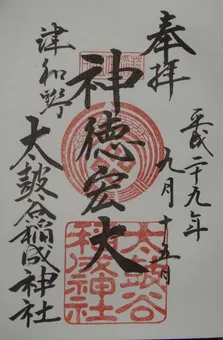 奉拝
平成二十九年
九月十五日
神徳宏大
津和野
太皷谷稲成神社
太皷谷
稲成神社